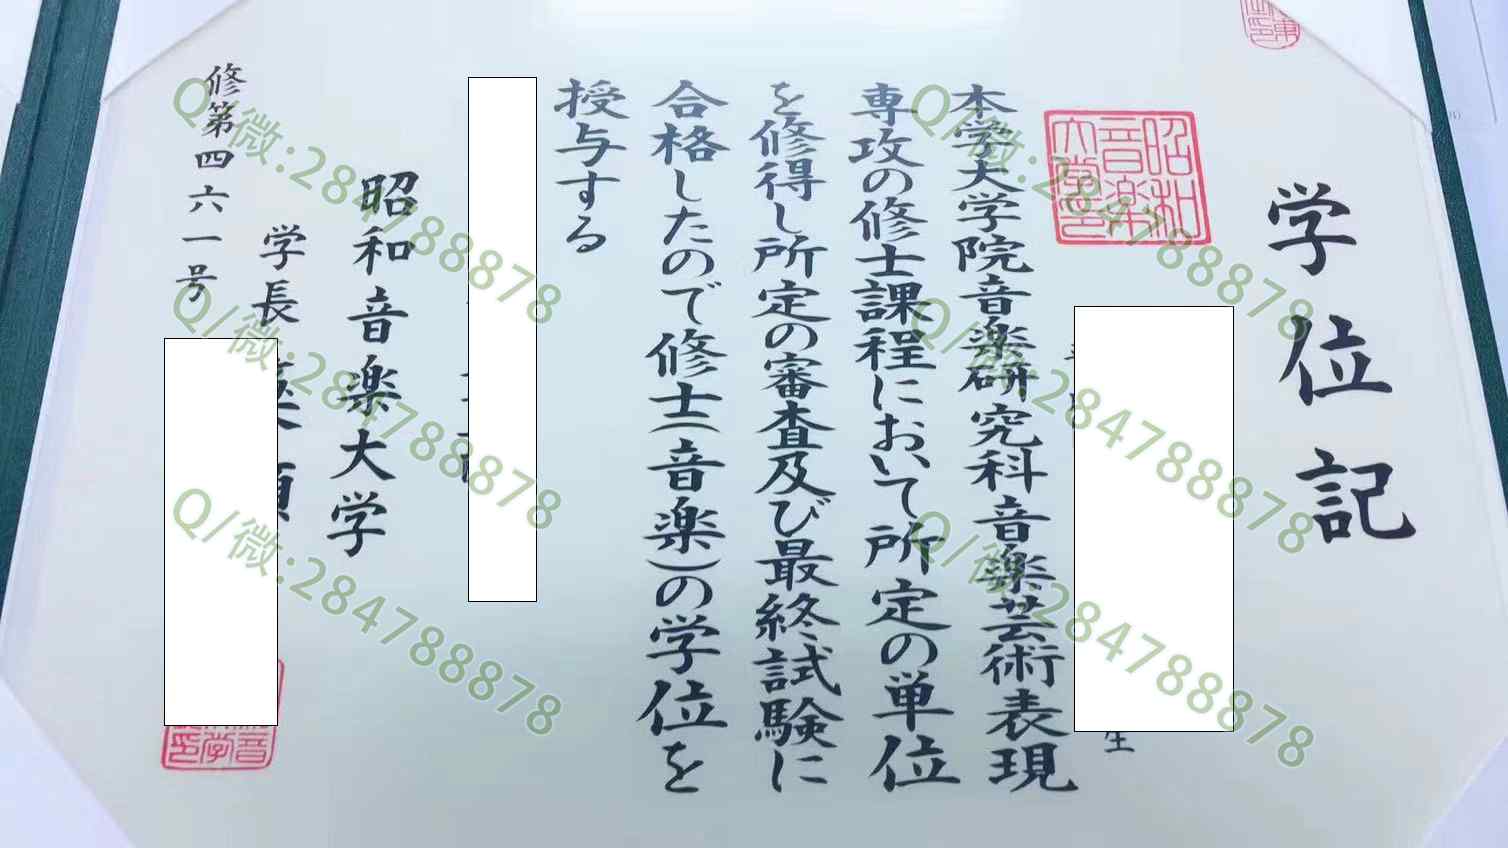 学位記
昭和
音楽
大学印
生
本学大学院音楽研究科音楽芸術表現
専攻の修士課程において所定の単位
を修得し所定の審査及び最終試験に
合格したので修士(音楽)の学位を
授与する
昭和音楽大学
学長
修第四六一号
Q/微:2847888878
Q/微:2847888878
Q/微:2847888878
Q/微:2847888878
Q/微:2847888878
Q/微:2847888878